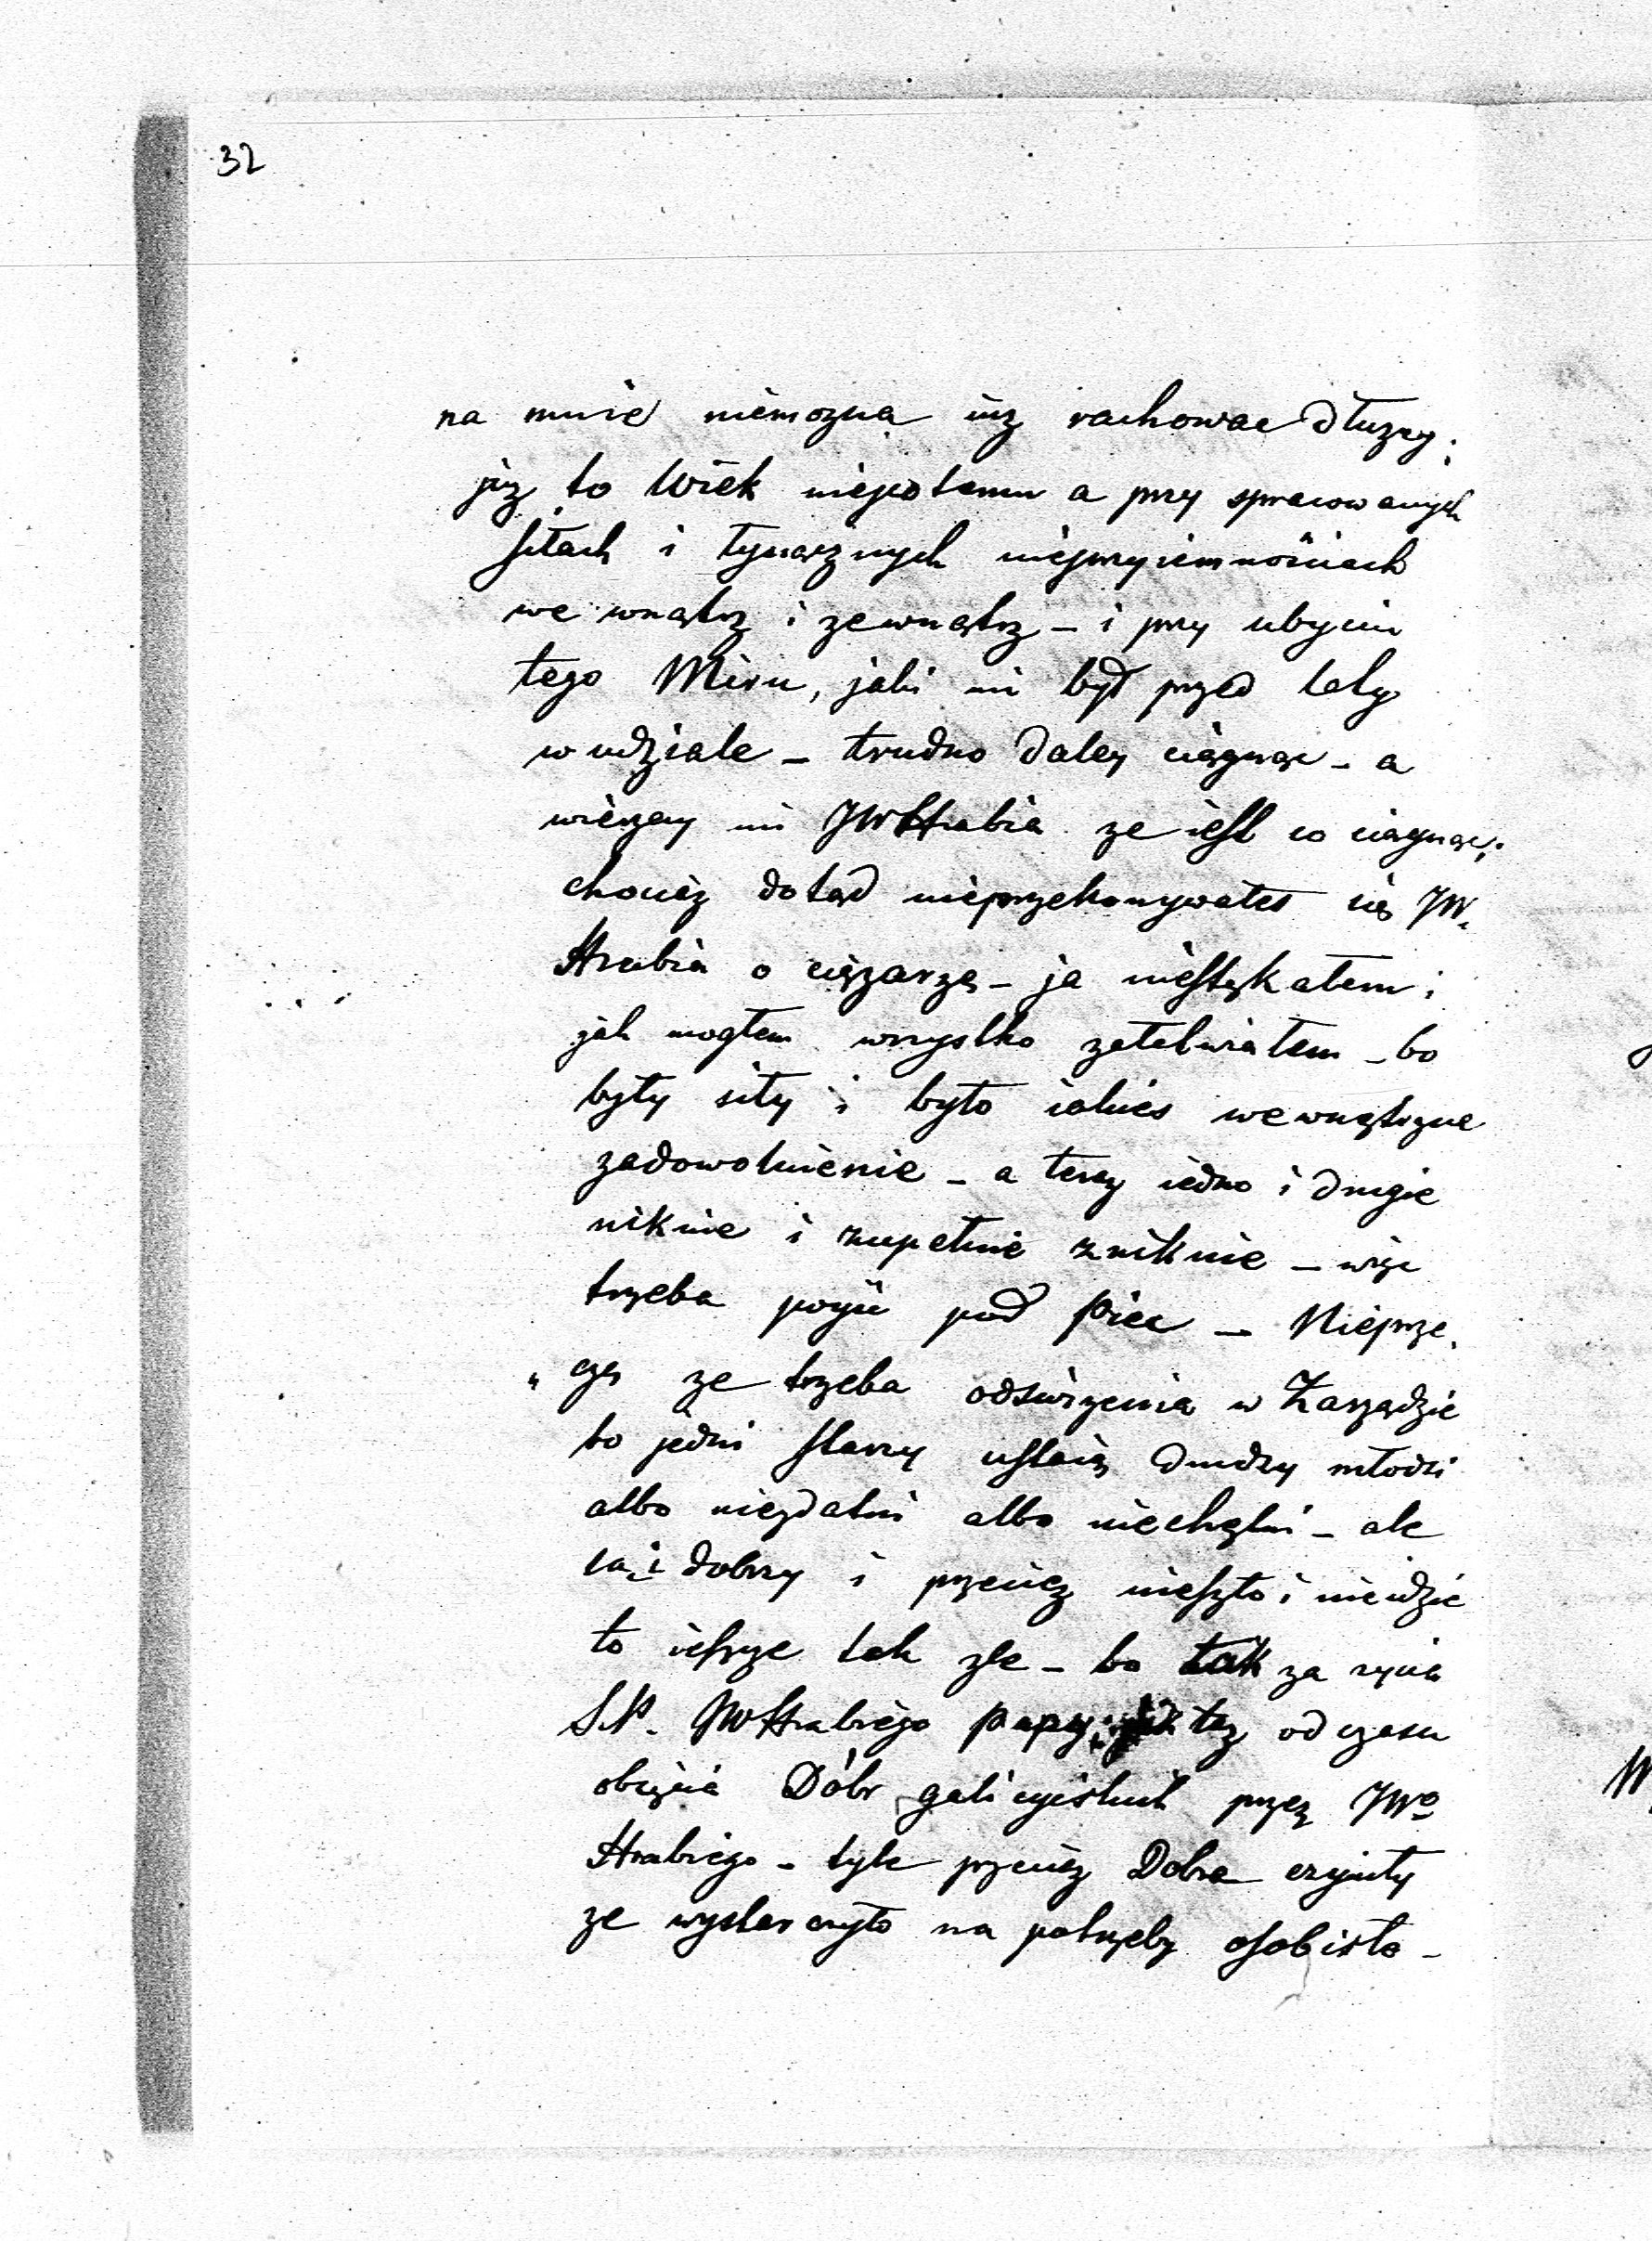 32
na mnie niemozna iuz rachowac dłuzey;
już to Wiek niepotemu a przy spracowanych
siłach i tysiącznych nieprzyiemnościach
we wnątrz i zewnątrz – i przy ubyciu
tego Miru, jaki mi był przed laty
w udziale – trudno daley ciągnąc – a
wierzay mi JWHrabia ze iest co ciągnąc;
chociaz dotąd nieprzekonywałes się JW.
Hrabia o ciązarze – ja niestękałem;
jak mogłem wszystko załatwiałem – bo
były siły i było iakies wewnętrzne
zadowolnienie – a teraz iedno i drugie
niknie i zupełnie zniknie – więc
trzeba pojść pod piec – Nieprze
„czę ze trzeba odświezenia w Zarządzie
bo jedni starzy ustaią drudzy młodzi
albo niezdatni albo niechętni – ale
są i dobrzy i przeciez nieszło i nieidzie
to ieszcze tak zle – bo tak za zycia
S.P. JWHrabiego Papy tez od czasu
obięcia Dóbr galicyiskich przez JWo
Hrabiego – tyle przeciez Dobra czyniły
ze wystarczyło na potrzeby osobiste –